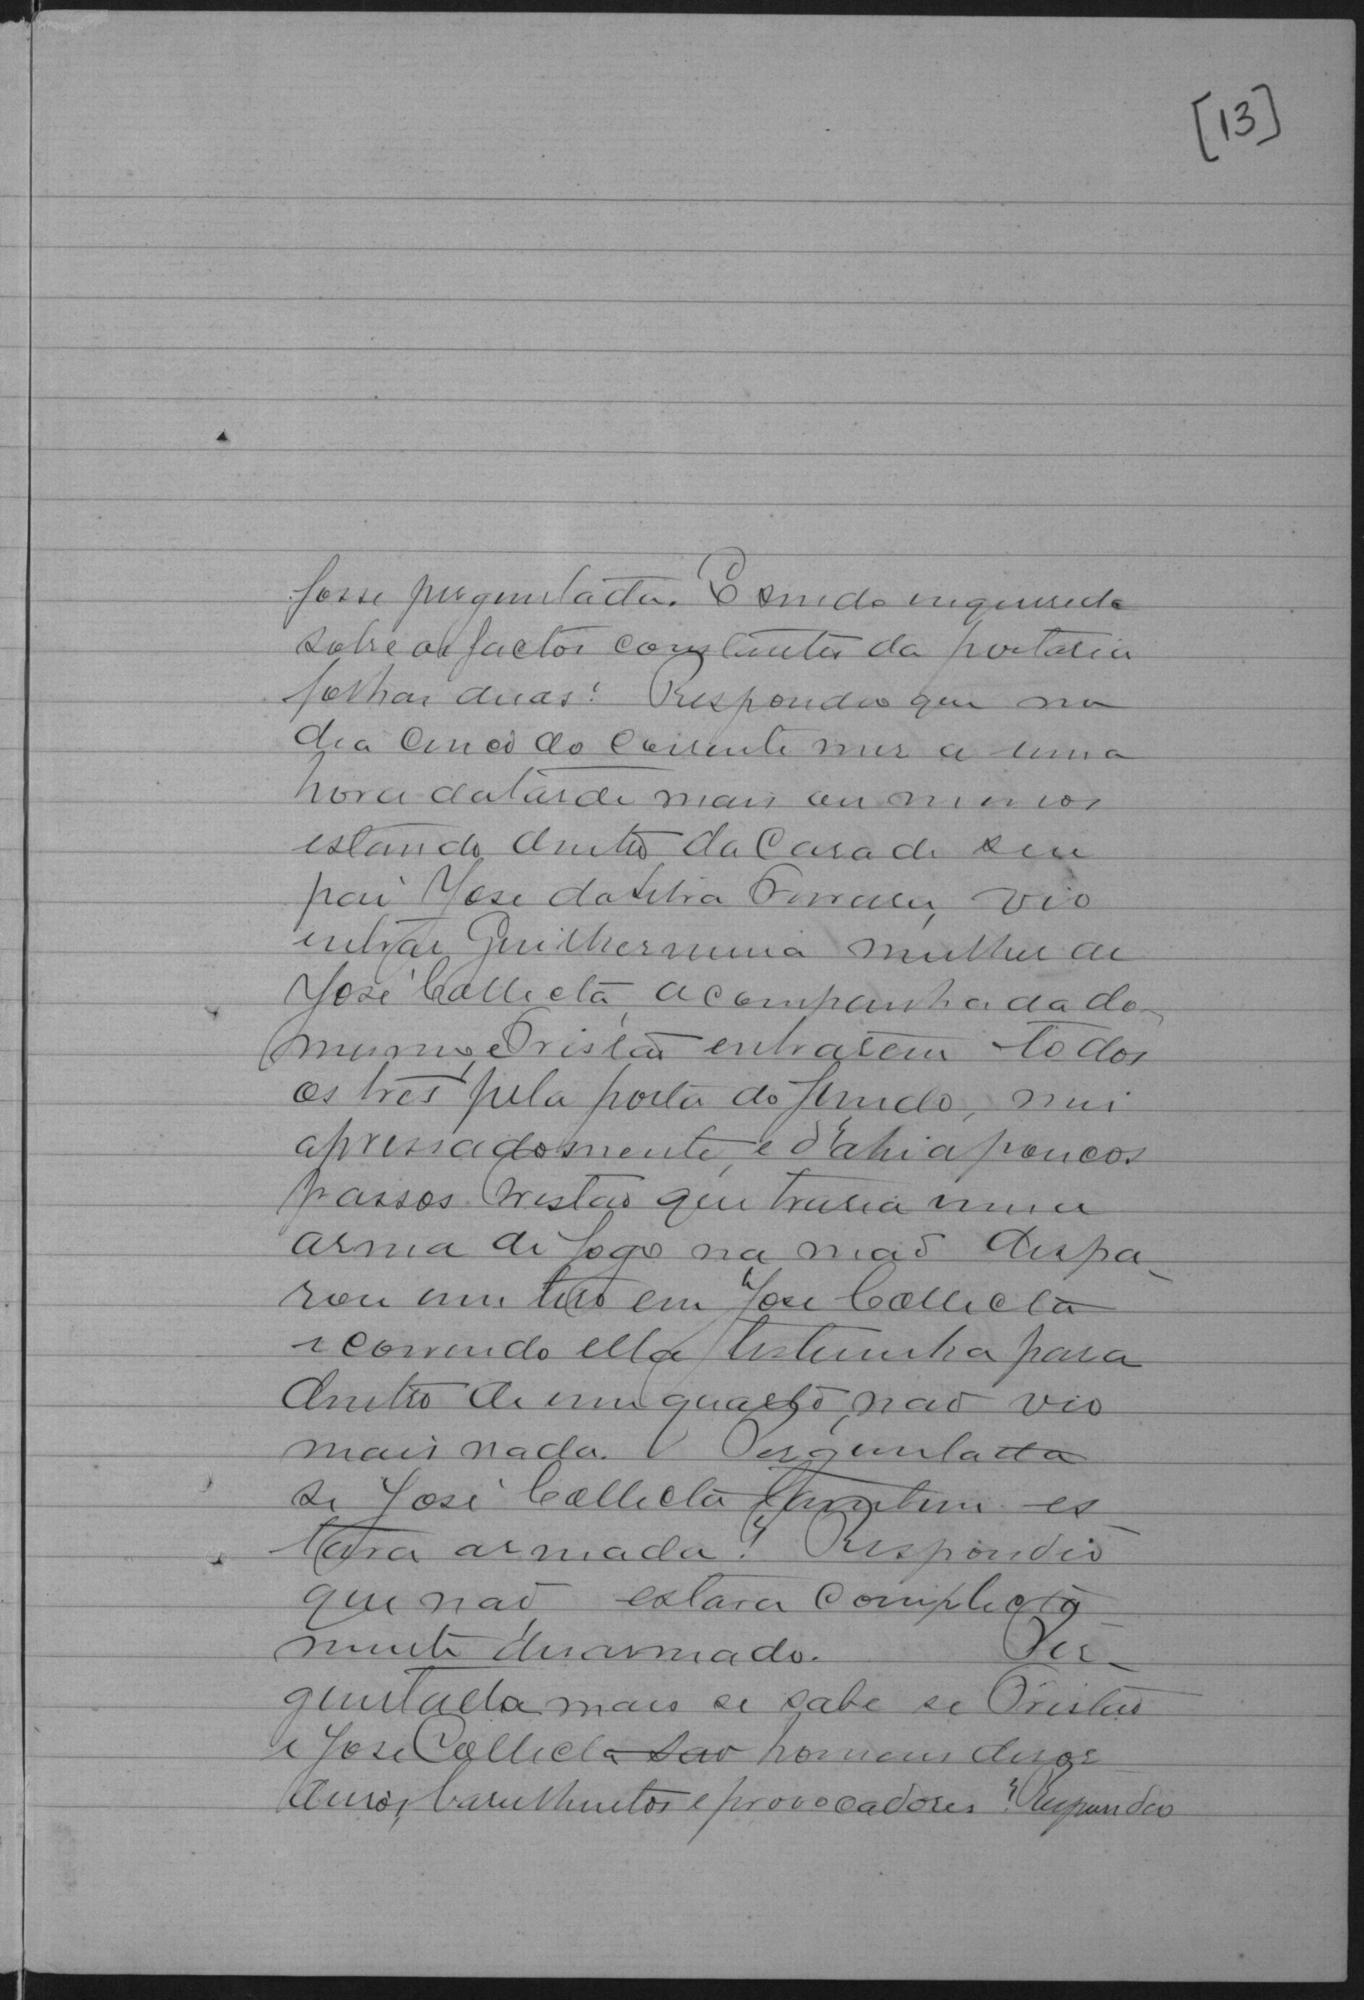 [13]
fosse perguntada. E sendo inquerida
sobre os factos constantes da portaria
folhas duas? Respondeo que no
dia cinco do corrente mes a uma
hora da tarde mais ou menos
estando dentro da Casa de seu
pai José da Silva Ferreira, vio
entrar Guilhermina mulher de
José Collecta, acompanhada do
mesmo, e Tristão entrarem todos
os tres, pela porta do fundo, mui
apressadosmente, e d'ahi a poucos
passos Tristão que trasia uma
arma de fogo na mão dispa-
rou um tiro em José Collecta
e correndo ella testemunha para
dentro de um quarto, não vio
mais nada. Perguntada
se José Collecta tambem es-
tava armada? Respondeo
que não estava completa
mente desarmado. Per-
guntada mais se sabe se Tristão
e José Collecta são homens desor-
deiros, barulhentos e provocadores? Respondeo